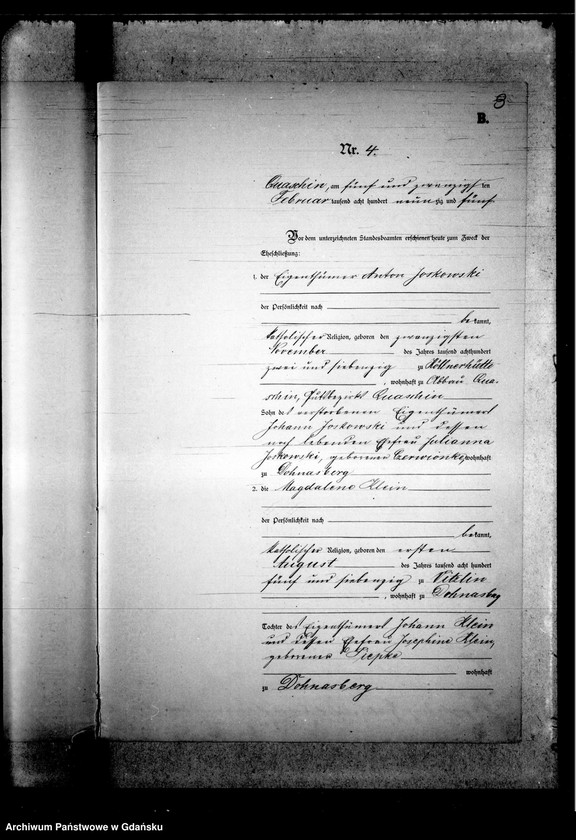 8
B.
Nr. 4.
Quaschin, am fünf und zwanzigsten
Februar tausend acht hundert neunzig und fünf
Vor dem unterzeichneten Standesbeamten erschienen heute zum Zweck der
Eheschließung:
1. der Eigenthümer Anton Joskowski
der Persönlichkeit nach
bekannt,
katholischer Religion, geboren den zwanzigsten
November des Jahres tausend achthundert
zwei und siebenzig zu Köllnerhütte
, wohnhaft zu Abbau Qua-
schin, Gutsbezirk Quaschin
Sohn des verstorbenen Eigenthümers
Johann Joskowski und dessen
noch lebenden Ehefrau Julianna
Joskowski, geborenen Czerwionke, wohnhaft
zu Dohnasberg
2. die Magdalene Klein
der Persönlichkeit nach
bekannt,
katholischer Religion, geboren den ersten
August des Jahres tausend acht hundert
fünf und siebenzig zu Vitzlin
, wohnhaft zu Dohnasberg
Tochter des Eigenthümers Johann Klein
und dessen Ehefrau Josephine Klein,
geborenen Piepke
wohnhaft
zu Dohnasberg
Archiwum Państwowe w Gdańsku